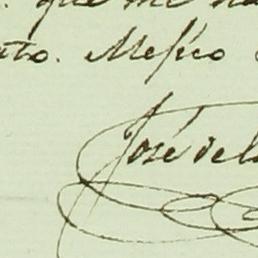 que me
to. Mexico
José de l